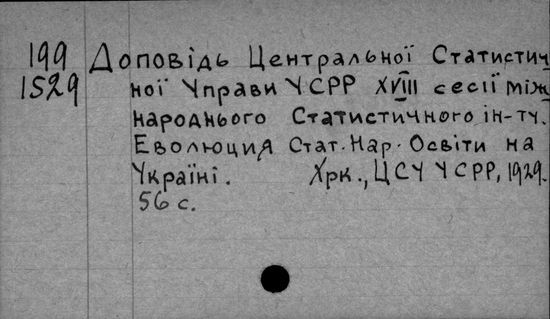 199 Доповідь Центральної Статистич
1529 ної Управи УСРР XVIII сесії між
народнього Статистичного ін-ту.
Еволюция Стат. Нар. Освіти на
Україні. Хрк., ЦСУ УСРР, 1929.
56 с.